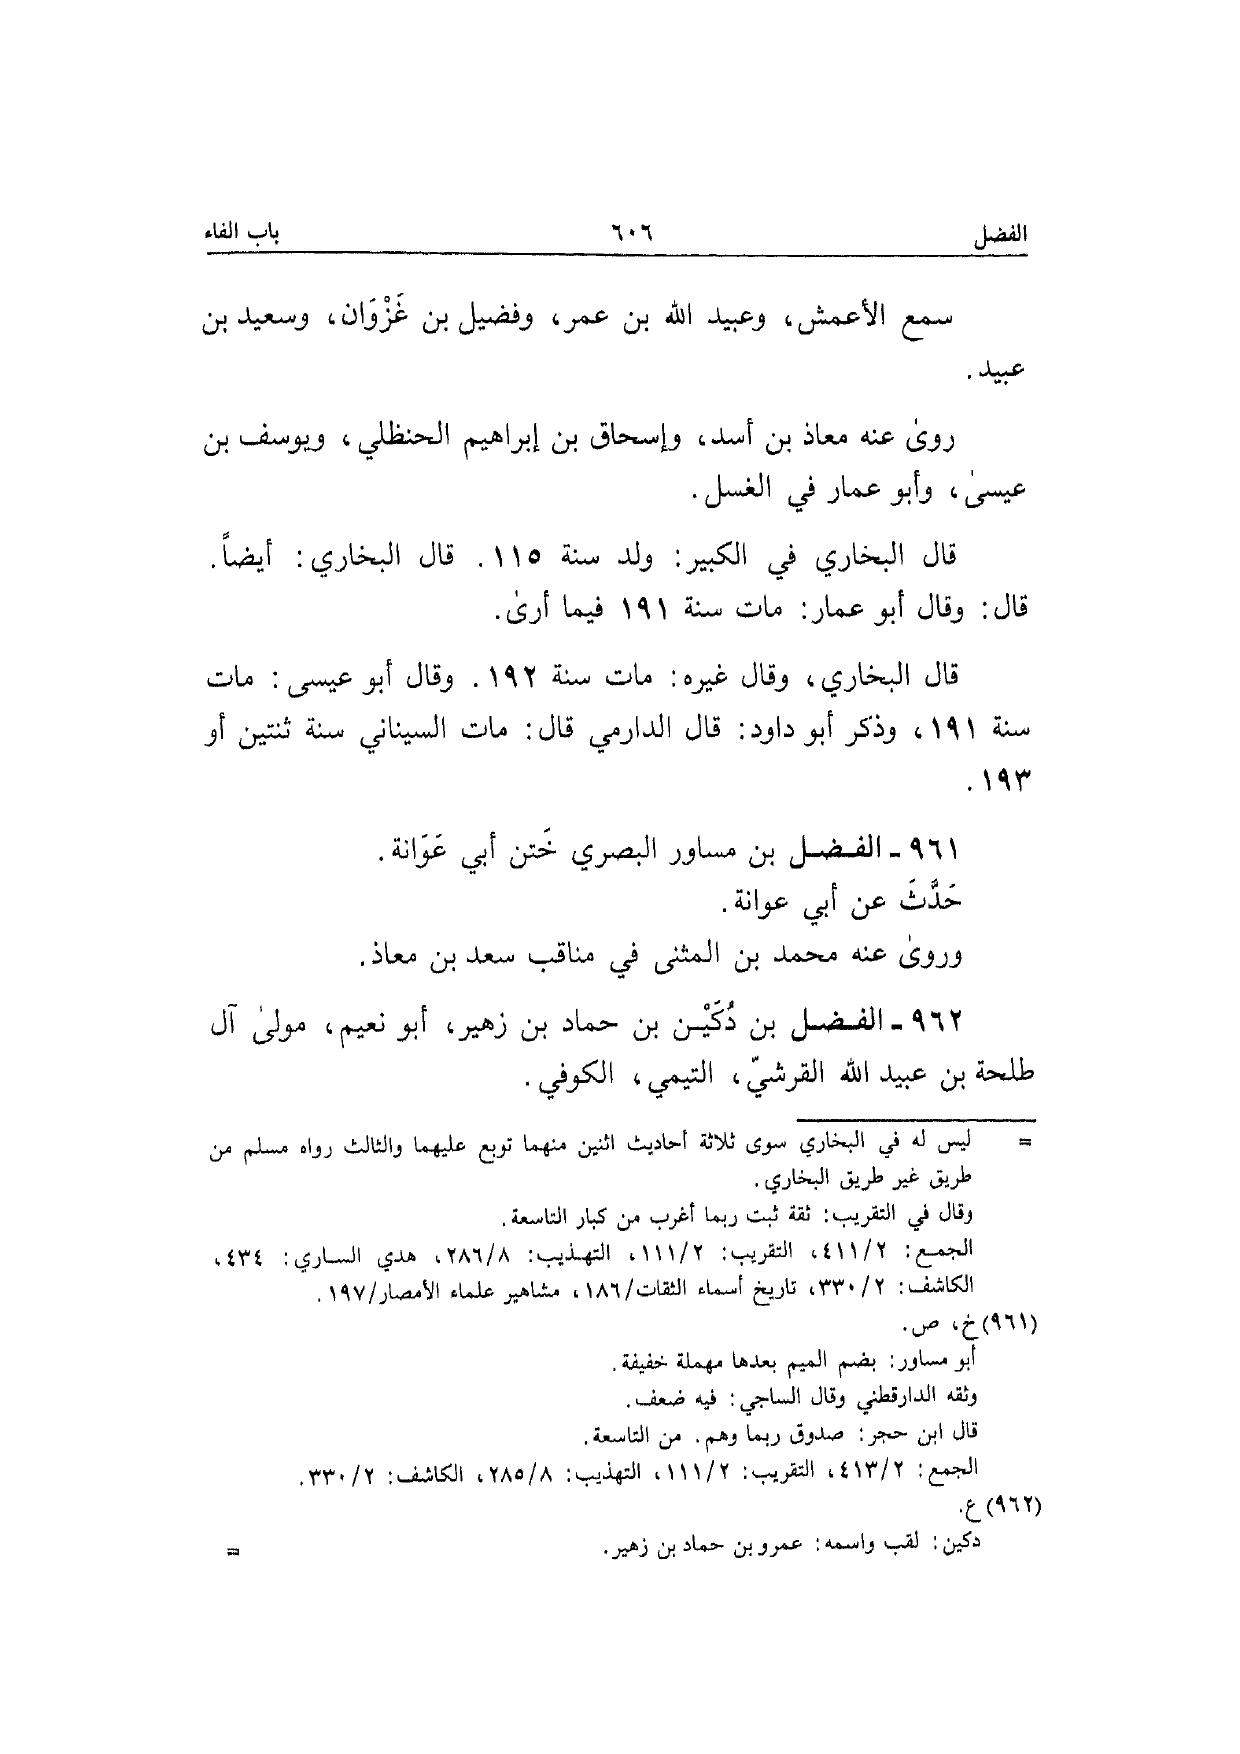 الفضل ٦٠٦ باب الفاء
سمع الأعمش، وعبيد الله بن عمر، وفضيل بن غَزْوَان، وسعيد بن
عبيد.
روىٰ عنه معاذ بن أسد، وإسحاق بن إبراهيم الحنظلي، ويوسف بن
عيسىٰ، وأبو عمار في الغسل.
قال البخاري في الكبير: ولد سنة ١١٥. قال البخاري: أيضاً.
قال: وقال أبو عمار: مات سنة ١٩١ فيما أرىٰ.
قال البخاري، وقال غيره: مات سنة ١٩٢. وقال أبو عيسى: مات
سنة ١٩١، وذكر أبو داود: قال الدارمي قال: مات السيناني سنة ثنتين أو
١٩٣.
٩٦١ - الفضل بن مساور البصري خَتن أبي عَوَانة.
حَدَّثَ عن أبي عوانة.
وروىٰ عنه محمد بن المثنى في مناقب سعد بن معاذ.
٩٦٢ - الفضل بن دُكَيْن بن حماد بن زهير، أبو نعيم، مولىٰ آل
طلحة بن عبيد الله القرشيّ، التيمي، الكوفي.
= ليس له في البخاري سوى ثلاثة أحاديث اثنين منهما توبع عليهما والثالث رواه مسلم من
طريق غير طريق البخاري.
وقال في التقريب: ثقة ثبت ربما أغرب من كبار التاسعة.
الجمع: ٤١١/٢، التقريب: ١١١/٢، التهذيب: ٢٨٦/٨، هدي الساري: ٤٣٤،
الكاشف: ٣٣٠/٢، تاريخ أسماء الثقات/١٨٦، مشاهير علماء الأمصار/١٩٧.
(٩٦١) خ، ص.
أبو مساور: بضم الميم بعدها مهملة خفيفة.
وثقه الدارقطني وقال الساجي: فيه ضعف.
قال ابن حجر: صدوق ربما وهم. من التاسعة.
الجمع: ٤١٣/٢، التقريب: ١١١/٢، التهذيب: ٢٨٥/٨، الكاشف: ٣٣٠/٢.
(٩٦٢) ع.
دكين: لقب واسمه: عمرو بن حماد بن زهير. =